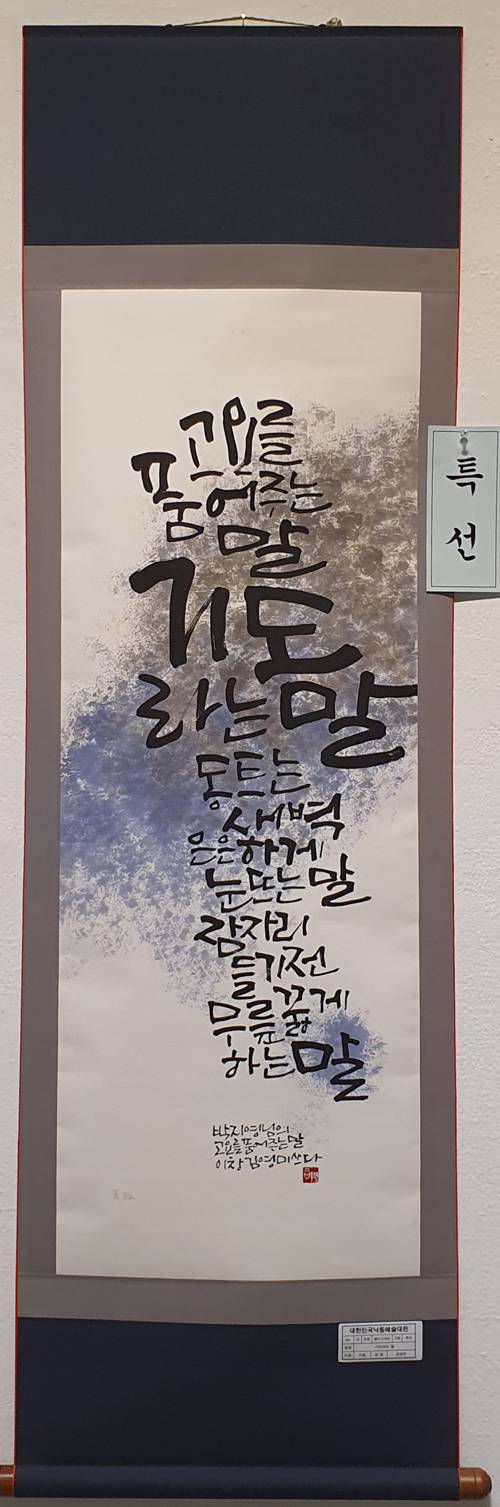 고요를
품어주는
말
기도
라는 말
동트는
새벽
은은하게
눈뜨는 말
잠자리
들기전
무릎 꿇게
하는 말
박지영님의
고요를 품어주는 말
이창 김영미 쓰다
특
선
대한민국낙동예술대전